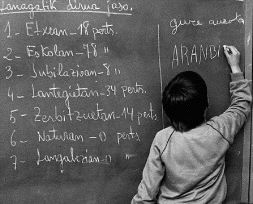 Lanagatik dirua jaso.
1- Etxean - 18 perts.
2- Eskolan - 78 "
3- Jubilazioan - 8 "
4- Lantegietan - 34 perts.
5- Zerbitzuetan - 14 perts.
6- Naturan - 0 perts
7- Langabezian - 0 "
gure
ARANBI